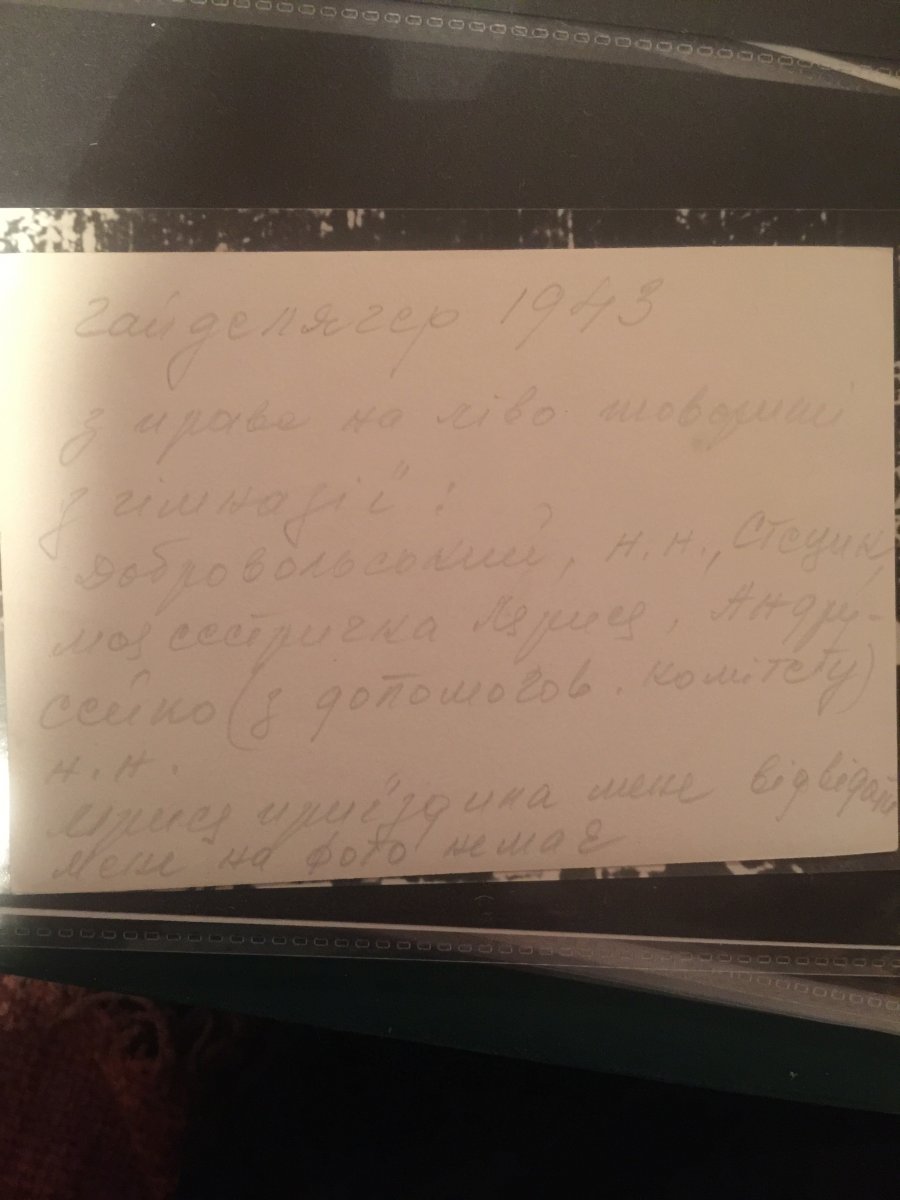 Гайденягер 1943
з права на ліво товариші
з гімназії:
Добровольський, н.н., Стецик,
моя сестричка Ляриса, Андру-
сейко (з допомогов. комітету)
н.н.
приїздила мене відвідати
мене на фото немає